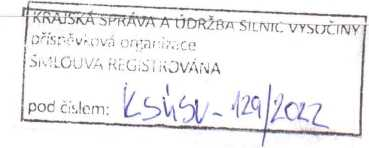 KRAJSKÁ SPRÁVA A ÚDRŽBA SILNIC VYSOČINY
příspěvková organizace
SMLOUVA REGISTROVÁNA
pod číslem: KSÚSV-129/2022